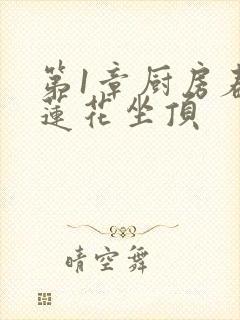 第1章厨房春
蓮花坐頂
晴空舞